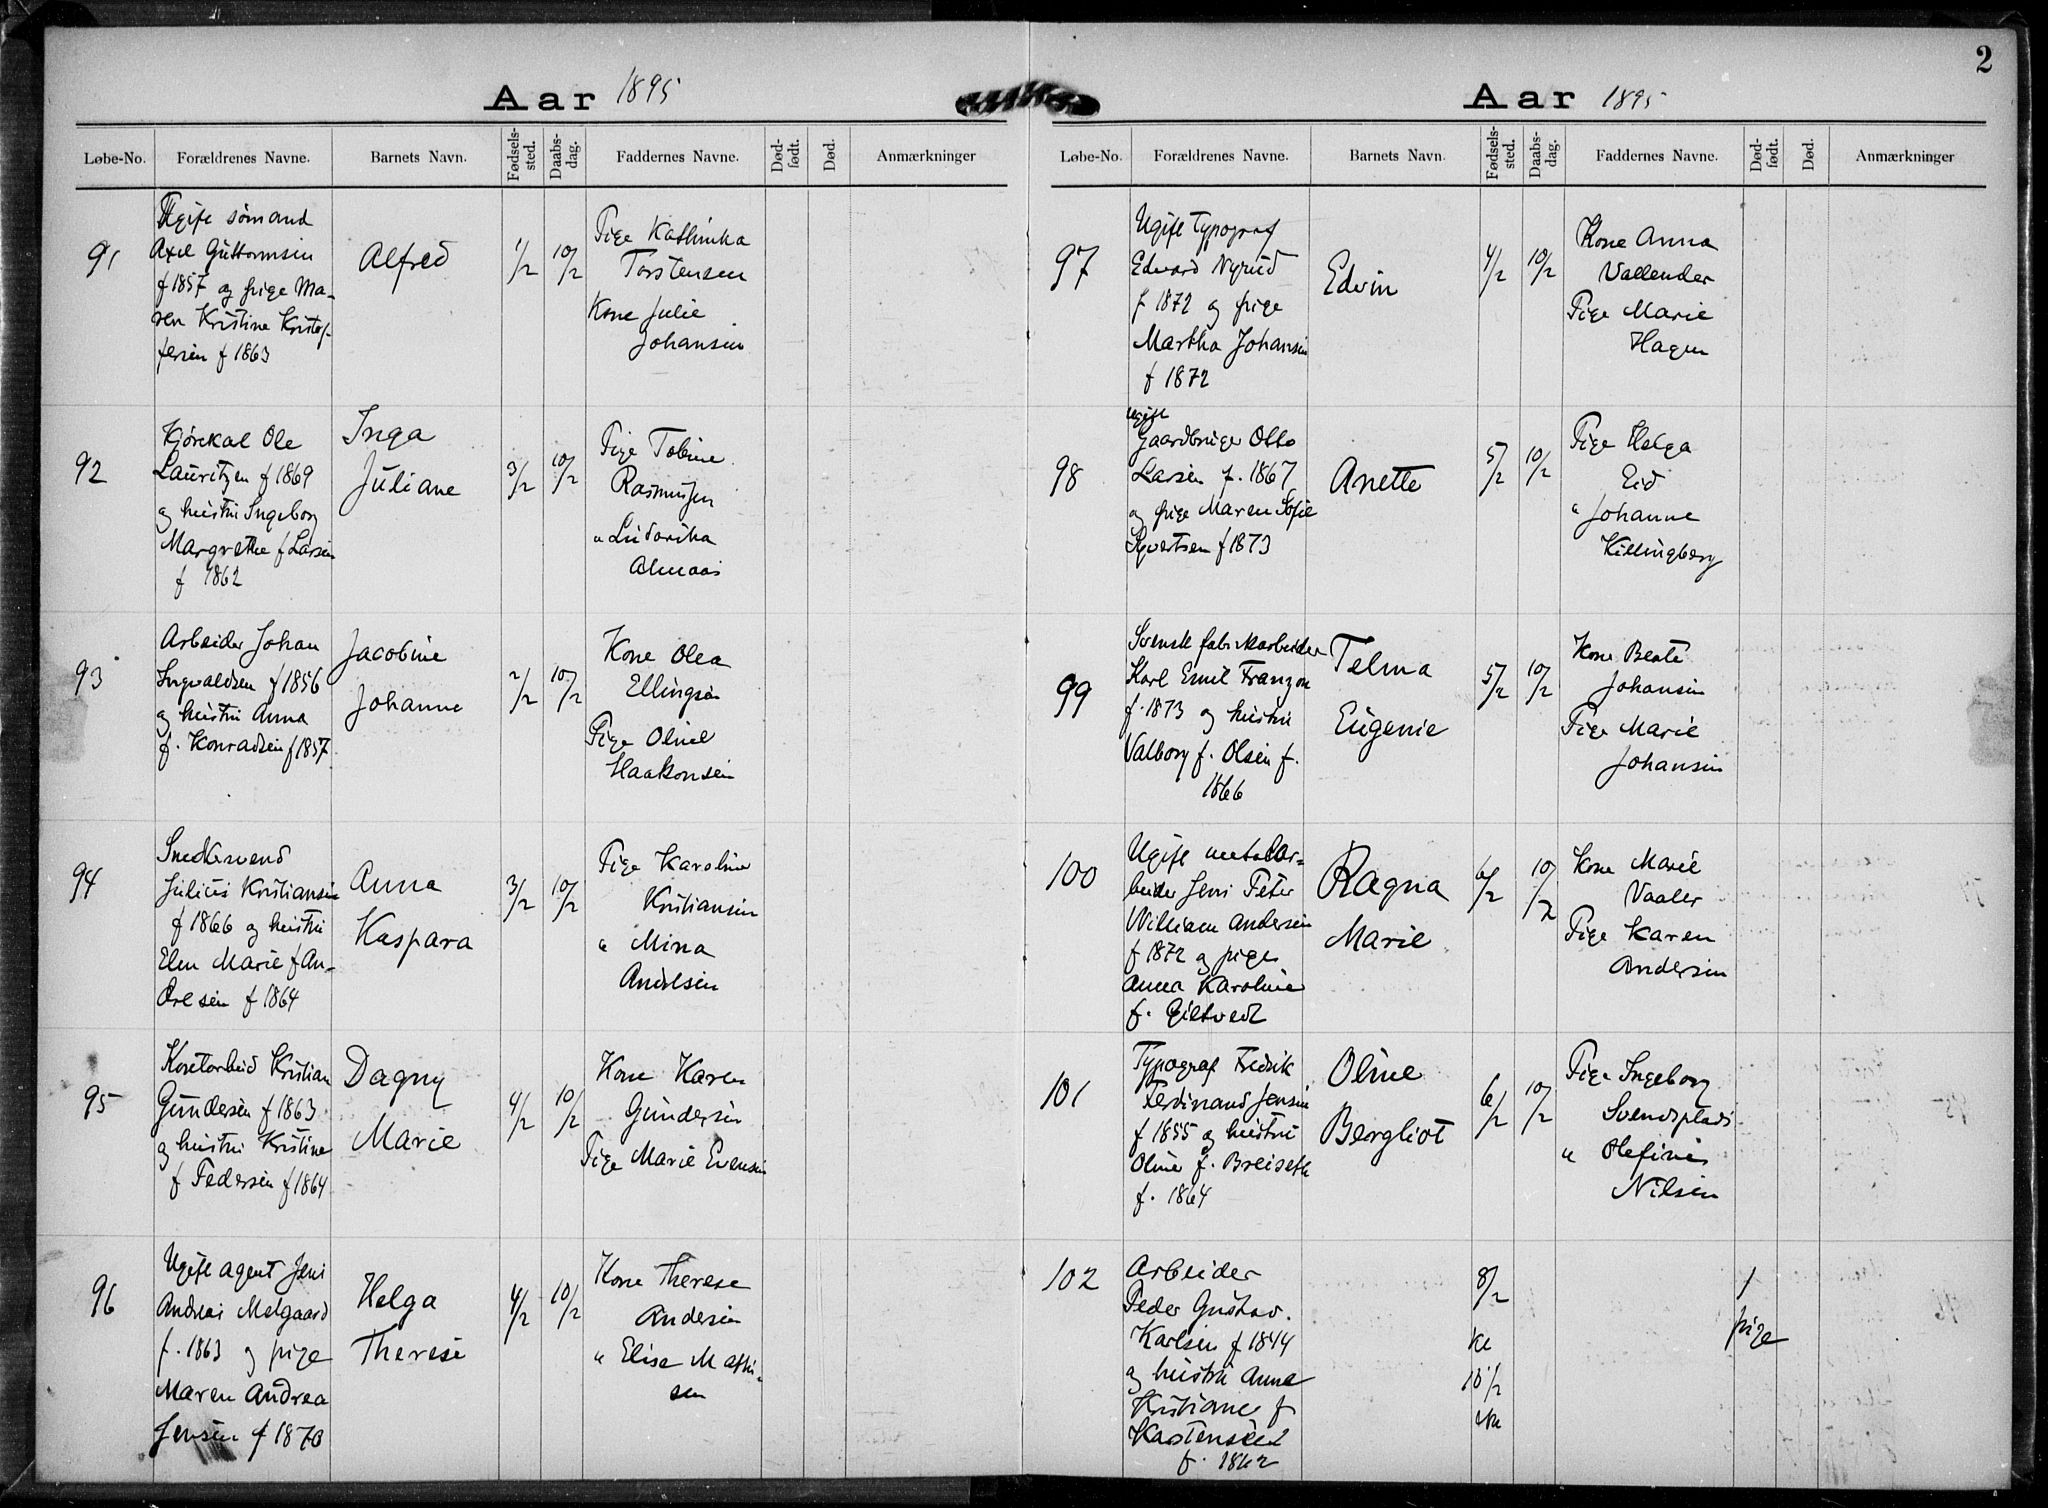 Aar 1895
Løbe-No. Forældrenes Navne. Barnets Navn. Fødsels-sted. Daabs-dag. Faddernes Navne. Død-født. Død. Anmærkninger
91
Ugift sømand
Axel Guttormsen
f 1857 og pige Ma-
ren Kristine Kristof-
fersen f 1863
Alfred
1/2
10/2
Pige Kathinka
Torstensen
Kone Julie
Johansen
92
Kjørekal Ole
Lauritzen f 1869
og hustru Ingeborg
Margrethe f Larsen
f 1862
Inga
Juliane
3/2
10/2
Pige Tobine
Rasmussen
" Ludovika
Almaas
93
Arbeider Johan
Ingvaldsen f 1856
og hustru Anna
f. Konradsen f 1857
Jacobine
Johanne
2/2
10/2
Kone Olea
Ellingsen
Pige Oline
Haakonsen
94
Snedkersvend
Julius Kristiansen
f 1866 og hustru
Elen Marie f An-
dresen f 1864
Anna
Kaspara
3/2
10/2
Pige Karoline
Kristiansen
" Mina
Andresen
95
Kristian
Gundersen f 1863
og hustru Kristine
f Pedersen f 1864
Dagny
Marie
4/2
10/2
Kone Karen
Gundersen
Pige Marie Evensen
96
Ugift agent Jens
Andreas Melgaard
f. 1863 og pige
Maren Andrea
Jensen f 1870
Helga
Therese
4/2
10/2
Kone Therese
Andersen
" Elise Mathi-
sen
2
Aar 1895
Løbe-No. Forældrenes Navne. Barnets Navn. Fødsels-sted. Daabs-dag. Faddernes Navne. Død-født. Død. Anmærkninger
97
Ugift typograf
Edvard Nyrud
f 1872 og pige
Martha Johansen
f 1872
Edvin
4/2
10/2
Kone Anna
Vallender
Pige Marie
Hagen
98
ugift
Gaardbruger Otto
Larsen f. 1867
og pige Maren Sofie
Syvertsen f 1873
Anette
5/2
10/2
Pige Helga
Eid
" Johanne
Killingberg
99
Svensk fabrikarbeider
Karl Emil Franzon
f. 1873 og hustru
Valborg f. Olsen f.
1866
Telma
Eugenie
5/2
10/2
Kone Beate
Johansen
Pige Marie
Johansen
100
Ugift metalar-
beider Jens Peter
William Andersen
f 1872 og pige
Anna Karoline
f. Gjeltvedt
Ragna
Marie
6/2
10/2
Kone Marie
Vaaler
Pige Karen
Andersen
101
Typograf Fredrik
Ferdinand Jensen
f 1855 og hustru
Oline f. Breiseth
f. 1864
Oline
Bergliot
6/2
10/2
Pige Ingeborg
Svendsplads
" Olefine
Nilsen
102
Arbeider
Peder Gustav
Karlsen f 1844
og hustru Anne
Kristiane f
f. 1862
8/2
1
pige